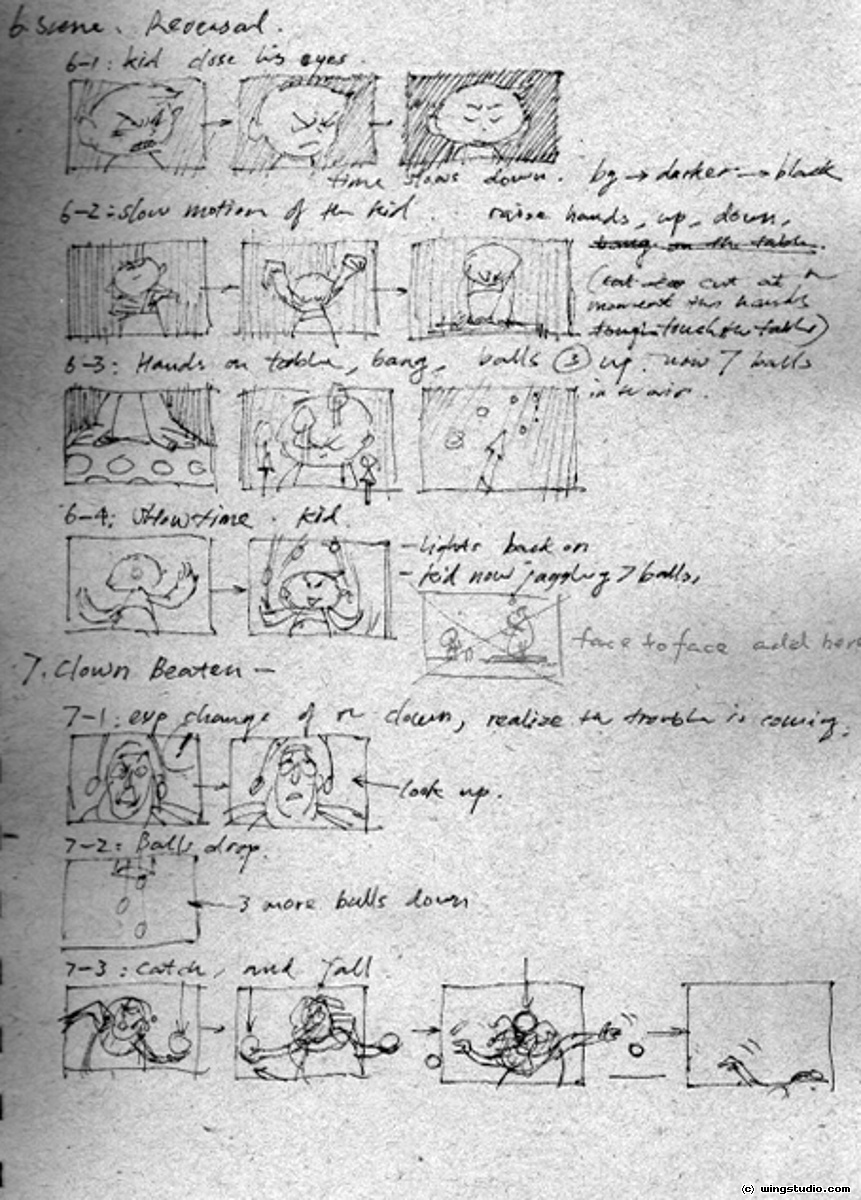 6 Scene. Reversal.
6-1: kid close his eyes.
time slows down. bg → darker → black
6-2: slow motion of the kid. raise hands, up, down,
bang on the table.
cut at
moment the hands
touch the table)
6-3: Hands on table, bang, balls (3) up. now 7 balls
in the air.
6-4: Show time. kid.
- lights back on
- kid now juggling 7 balls,
face to face add here
7. Clown Beaten -
7-1: exp change of the clown, realize the trouble is coming.
look up.
7-2: Balls drop.
3 more balls down
7-3: catch, and fall.
(c) wingstudio.com